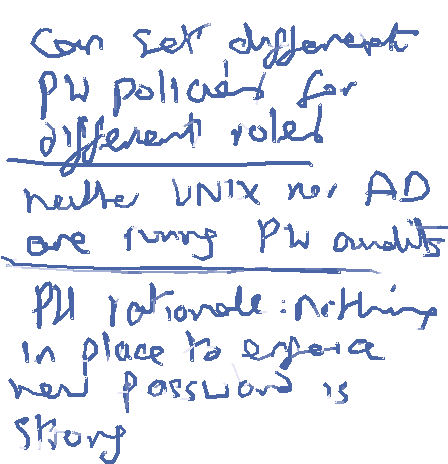 Can set different
PW policies for
different roles
neither UNIX nor AD
are running PW audits
PW rationale: nothing
in place to enforce
new password is
strong